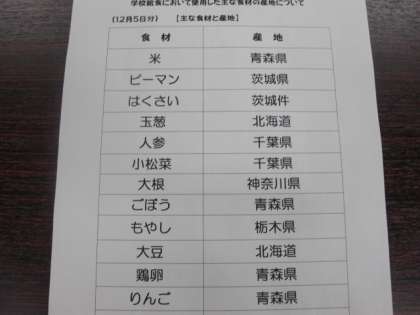 学校給食において使用した主な食材の産地について
(12月5日分) 【主な食材と産地】
食材 産地
米 青森県
ピーマン 茨城県
はくさい 茨城件
玉葱 北海道
人参 千葉県
小松菜 千葉県
大根 神奈川県
ごぼう 青森県
もやし 栃木県
大豆 北海道
鶏卵 青森県
りんご 青森県